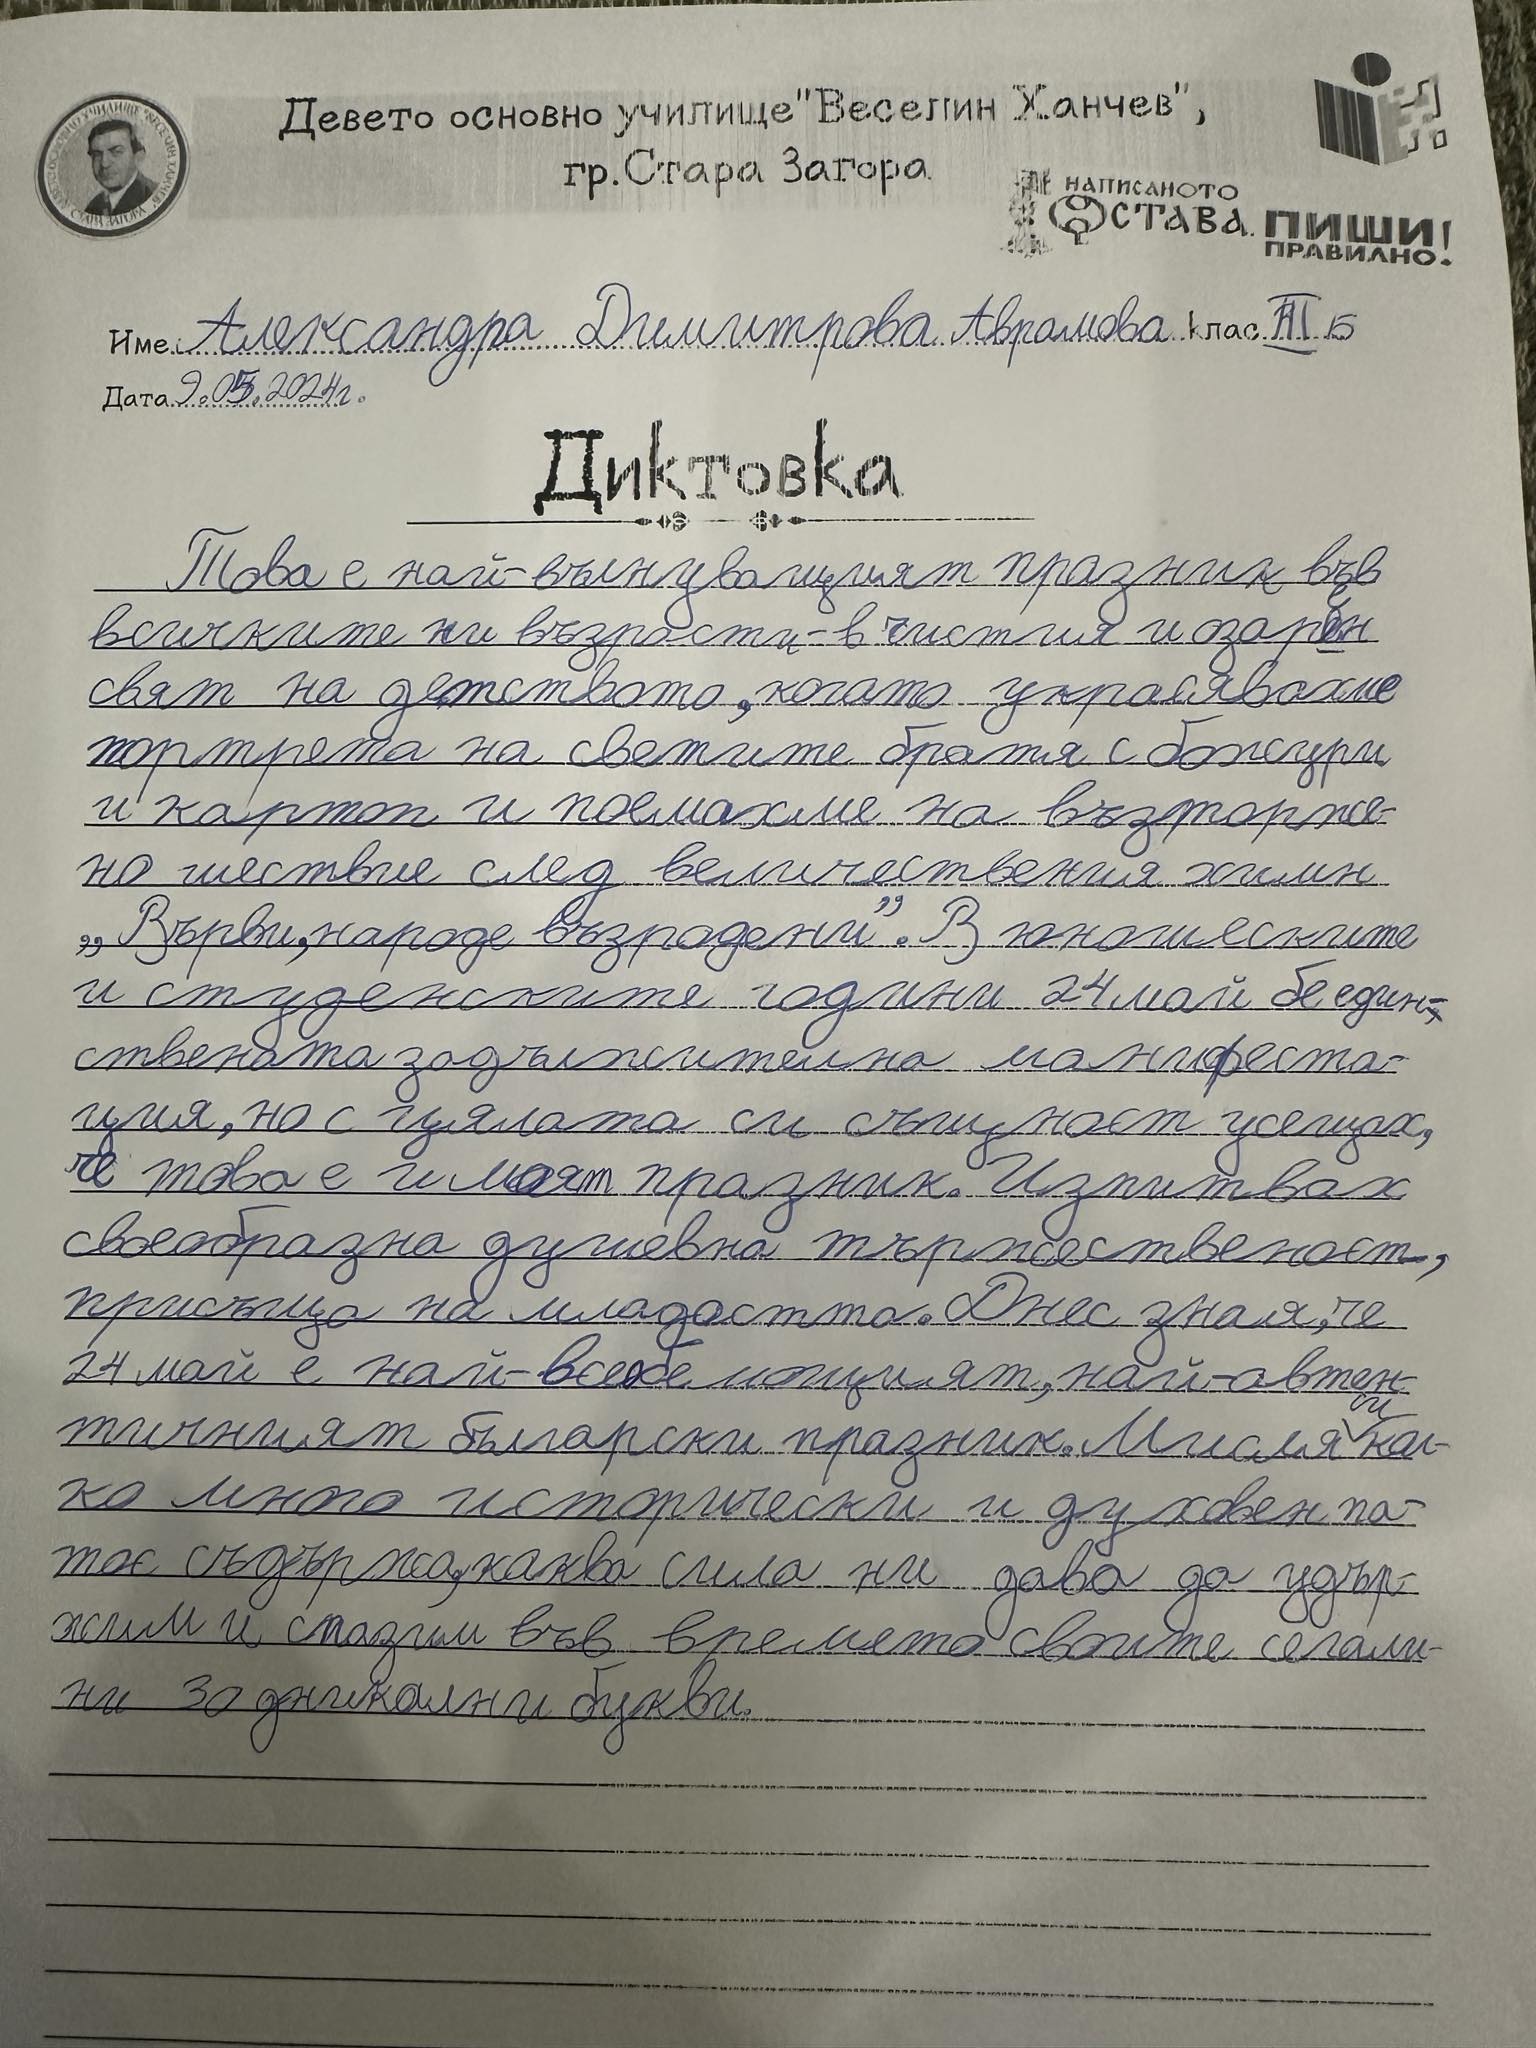 Девето основно училище"Веселин Ханчев",
гр.Стара Загора
НАПИСАНОТО
ОСТАВА.
ПИШИ
ПРАВИЛНО!
Име Александра Димитрова Аврамова клас III Б
Дата 9.05.2024г.
Диктовка
Това е най-вълнуващият празник във
всичките ни възрасти-в чистия и озарен
свят на детството, когато украсявахме
портрета на светите братя с божури
и картоп и поемахме на възторже-
но шествие след величествения химн
„Върви, народе възродени”. В юношеските
и студенските години 24 май бе един-
ствената задължителна манифеста-
ция, но с цялата си същност усещах,
че това е и моят празник. Изпитвах
своеобразна душевна тържественост,
присъща на младостта. Днес зная, че
24 май е най-всеобемощият, най-автен-
тичният български празник. Мисля си кол-
ко много исторически и духовен па-
тос съдържа, каква сила ни дава да удър-
жим и спазим във времето своите сегами-
ни за дникални букви.